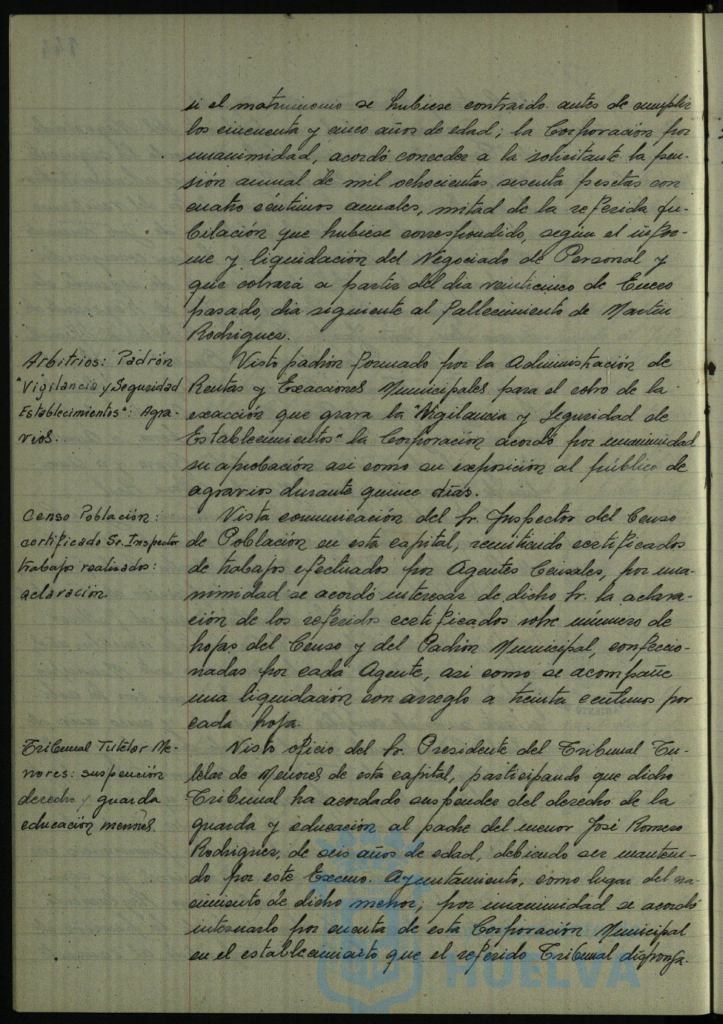 si el matrimonio se hubiese contraido antes de cumplir
los cincuenta y cinco años de edad; la Corporación, por
unanimidad, acordó conceder a la solicitante la pen-
sión anual de mil ochocientas sesenta pesetas con
cuatro céntimos anuales, mitad de la referida ju-
bilación que hubiese correspondido, según el infor-
me y liquidación del Negociado de Personal y
que cobrará a partir del dia veinticinco de Enero
pasado, dia siguiente al fallecimiento de Martin
Rodriguez.
Arbitrios: Padrón
"Vigilancia y Seguridad
Establecimientos": Agra-
vios.
Visto padrón formado por la Administración de
Rentas y Exacciones Municipales para el cobro de la
exacción que grava la "Vigilancia y Seguridad de
Establecimientos" la Corporación acordó por unanimidad
su aprobación asi como su exposición al público de
agravios durante quince dias.
Censo Población:
certificado Sr. Inspector
trabajos realizados:
aclaración
Vista comunicación del Sr. Inspector del Censo
de Población en esta capital, remitiendo certificados
de trabajos efectuados por Agentes Censales, por una-
nimidad se acordó interesar de dicho Sr. la aclara-
ción de los referidos certificados sobre número de
hojas del Censo y del Padrón Municipal, confeccio-
nadas por cada Agente, asi como se acompañe
una liquidación con arreglo a treinta centimos por
cada hoja.
Tribunal Tutelar Me-
nores: suspención
derecho y guarda
educación menores.
Visto oficio del Sr. Presidente del Tribunal Tu-
telar de Menores de esta capital, participando que dicho
Tribunal ha acordado suspender del derecho de la
guarda y educación al padre del menor José Romero
Rodriguez, de seis años de edad, debiendo ser manteni-
do por este Excmo. Ayuntamiento, como lugar del na-
cimiento de dicho menor; por unanimidad se acordó
internarlo por cuenta de esta Corporación Municipal
en el establecimiento que el referido Tribunal disponga.
HUELVA